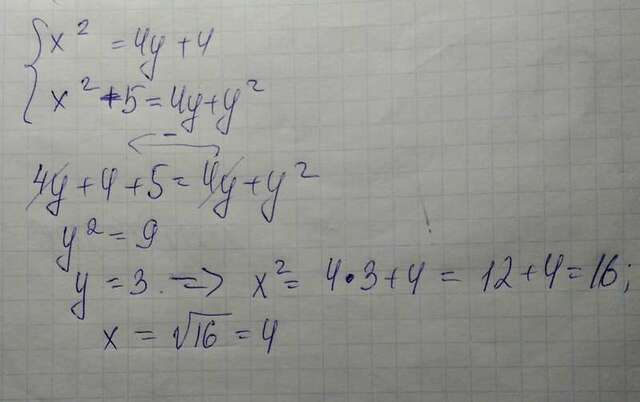 { x² = 4y + 4
x² + 5 = 4y + y²
−
4y + 4 + 5 = 4y + y²
y² = 9
y = 3. => x² = 4 • 3 + 4 = 12 + 4 = 16;
x = √16 = 4